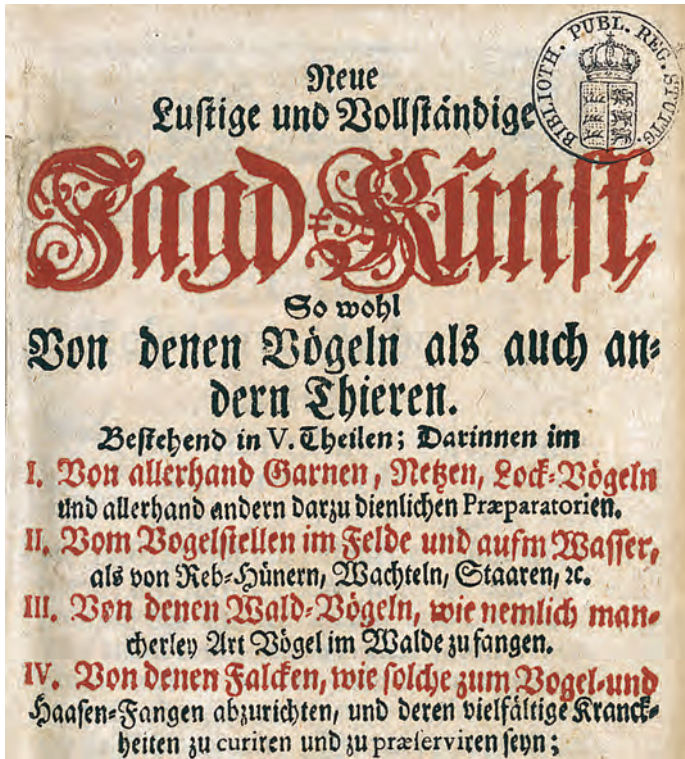 Neue
Lustige und Vollständige
Jagd-Kunst,
So wohl
Von denen Vögeln als auch an-
dern Thieren.
Bestehend in V. Theilen; Darinnen im
I. Von allerhand Garnen, Netzen, Lock-Vögeln
und allerhand andern darzu dienlichen Præparatorien.
II. Vom Vogelstellen im Felde und aufm Wasser,
als von Reb-Hünern, Wachteln, Staaren, ꝛc.
III. Von denen Wald-Vögeln, wie nemlich man-
cherley Art Vögel im Walde zu fangen.
IV. Von denen Falcken, wie solche zum Vogel-und
Haasen-Fangen abzurichten, und deren vielfältige Kranck-
heiten zu curiren und zu præserviren seyn;
BIBLIOTH. PUBL. REG. STUTTG.